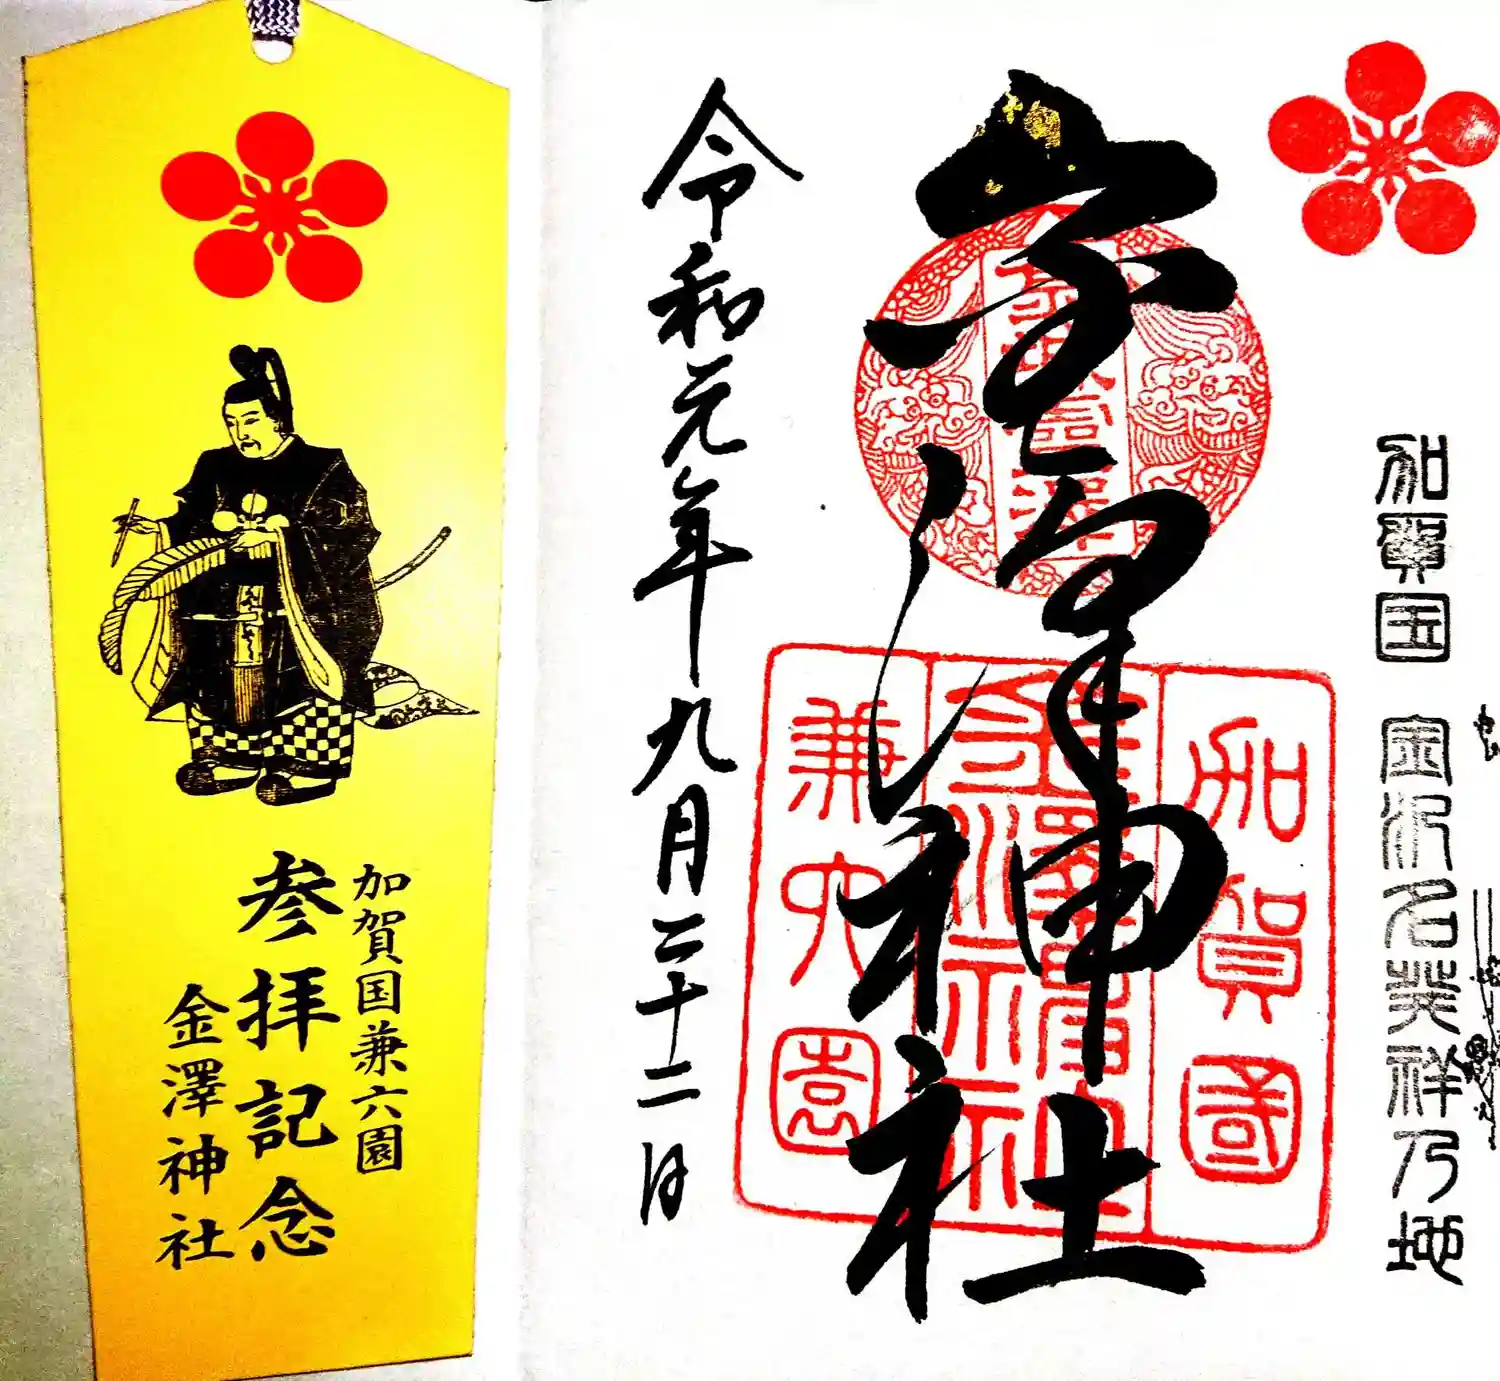 加賀国兼六園
参拝記念
金澤神社
加賀国 金沢名発祥乃地
金澤神社
令和元年九月二十二日
加賀國
金澤神社
兼六園